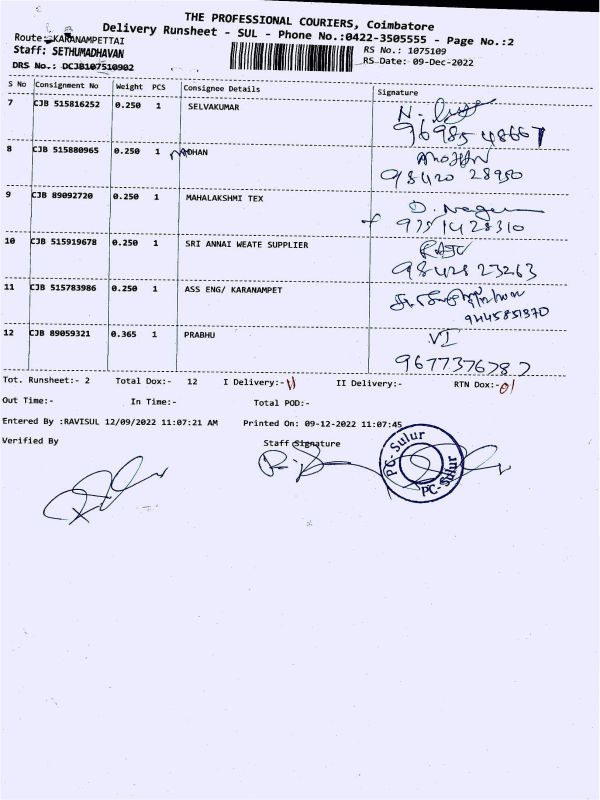 THE PROFESSIONAL COURIERS, Coimbatore
Delivery Runsheet - SUL - Phone No.:0422-3505555 - Page No.:2
Route: KARANAMPETTAI
RS No.: 1075109
Staff: SETHUMADHAVAN
RS Date: 09-Dec-2022
DRS No.: DCJB107510902
S No Consignment No Weight PCS Consignee Details Signature
7 CJB 515816252 0.250 1 SELVAKUMAR
96985 48667
8 CJB 515880965 0.250 1 MOHAN
98420 28950
9 CJB 89092720 0.250 1 MAHALAKSHMI TEX
9751428310
10 CJB 515919678 0.250 1 SRI ANNAI WEATE SUPPLIER
98428 23263
11 CJB 515783986 0.250 1 ASS ENG/ KARANAMPET
9445851370
12 CJB 89059321 0.365 1 PRABHU
VI
9677376782
Tot. Runsheet:- 2 Total Dox:- 12 I Delivery:- 11 II Delivery:- RTN Dox:- 01
Out Time:- In Time:- Total POD:-
Entered By :RAVISUL 12/09/2022 11:07:21 AM Printed On: 09-12-2022 11:07:45
Verified By Staff Signature
PC-Sulur
PC-Sulur